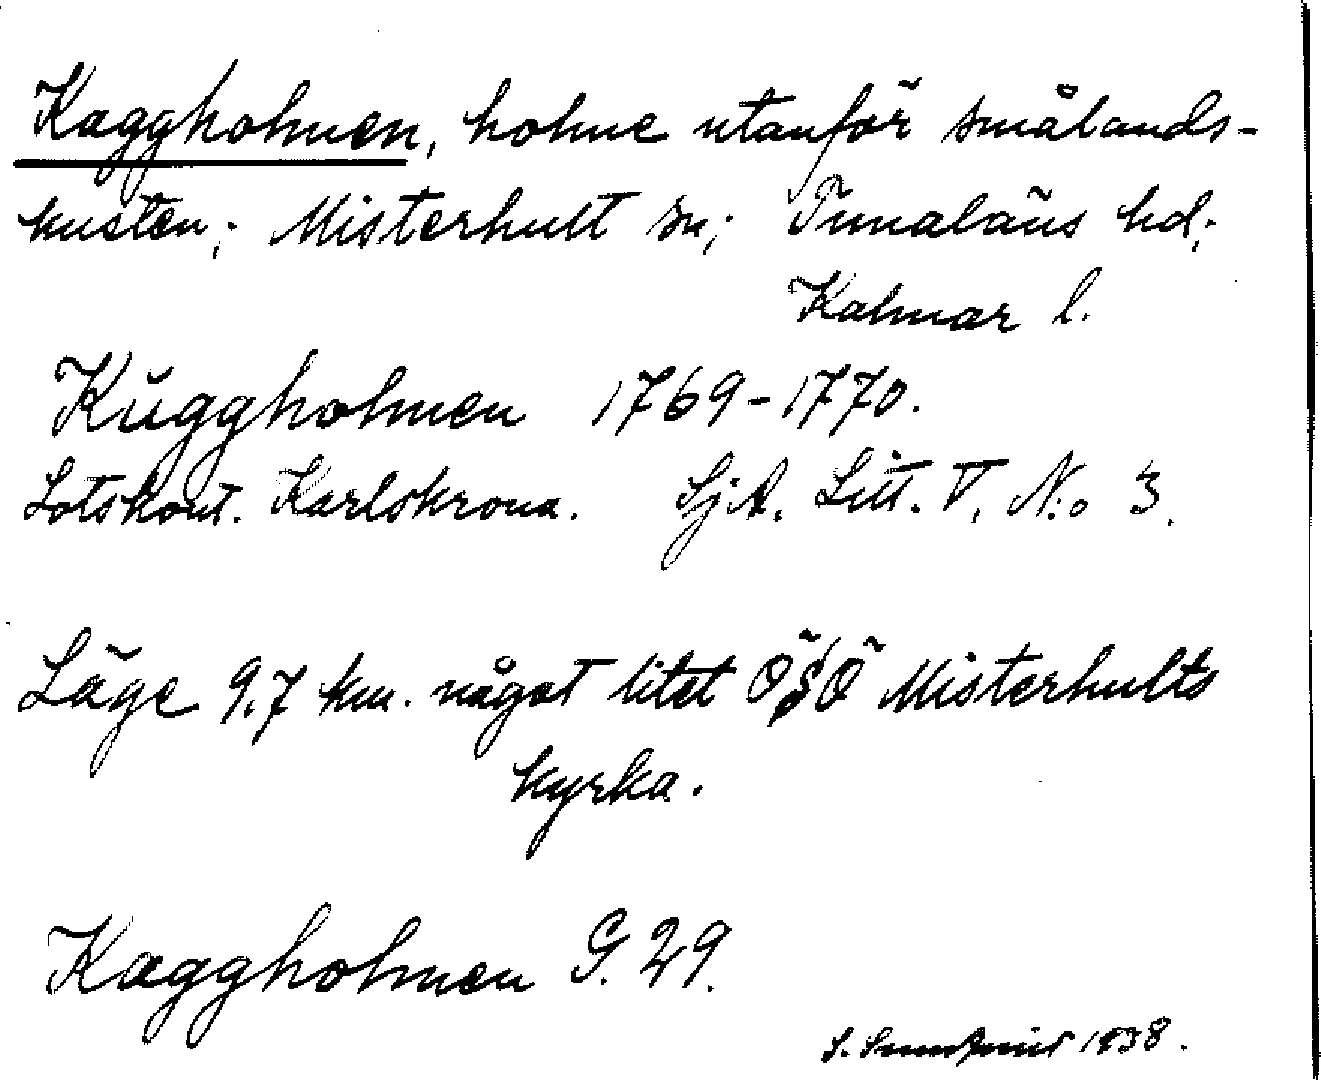 Kaggholmen, holme utanför smålands-
kusten; Misterhult sn; Tunaläns hd;
Kalmar l.
Kŭggholmen 1769-1770.
Lotskont. Karlskrona. SjA. Litt. V, N:o 3.
Läge 9.7 km. något litet ÖSÖ Misterhults
kyrka.
Kaggholmen G. 29.
S. 1938.